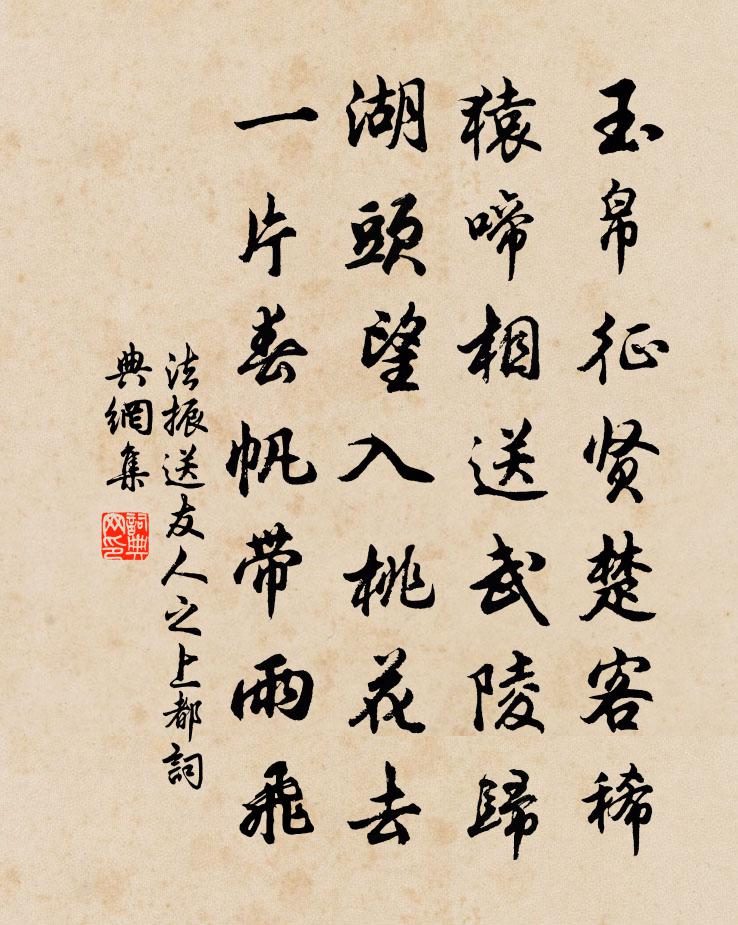 玉帛征贤楚客稀
猿啼相送武陵歸
湖頭望入桃花去
一片春帆带雨飛
法振送友人之上都詞
典網集
詞典
网印